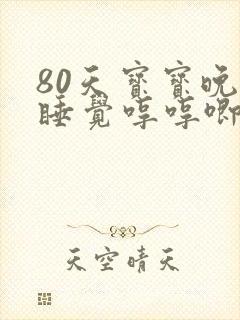 80天宝宝晚
睡觉哼哼唧
天空晴天